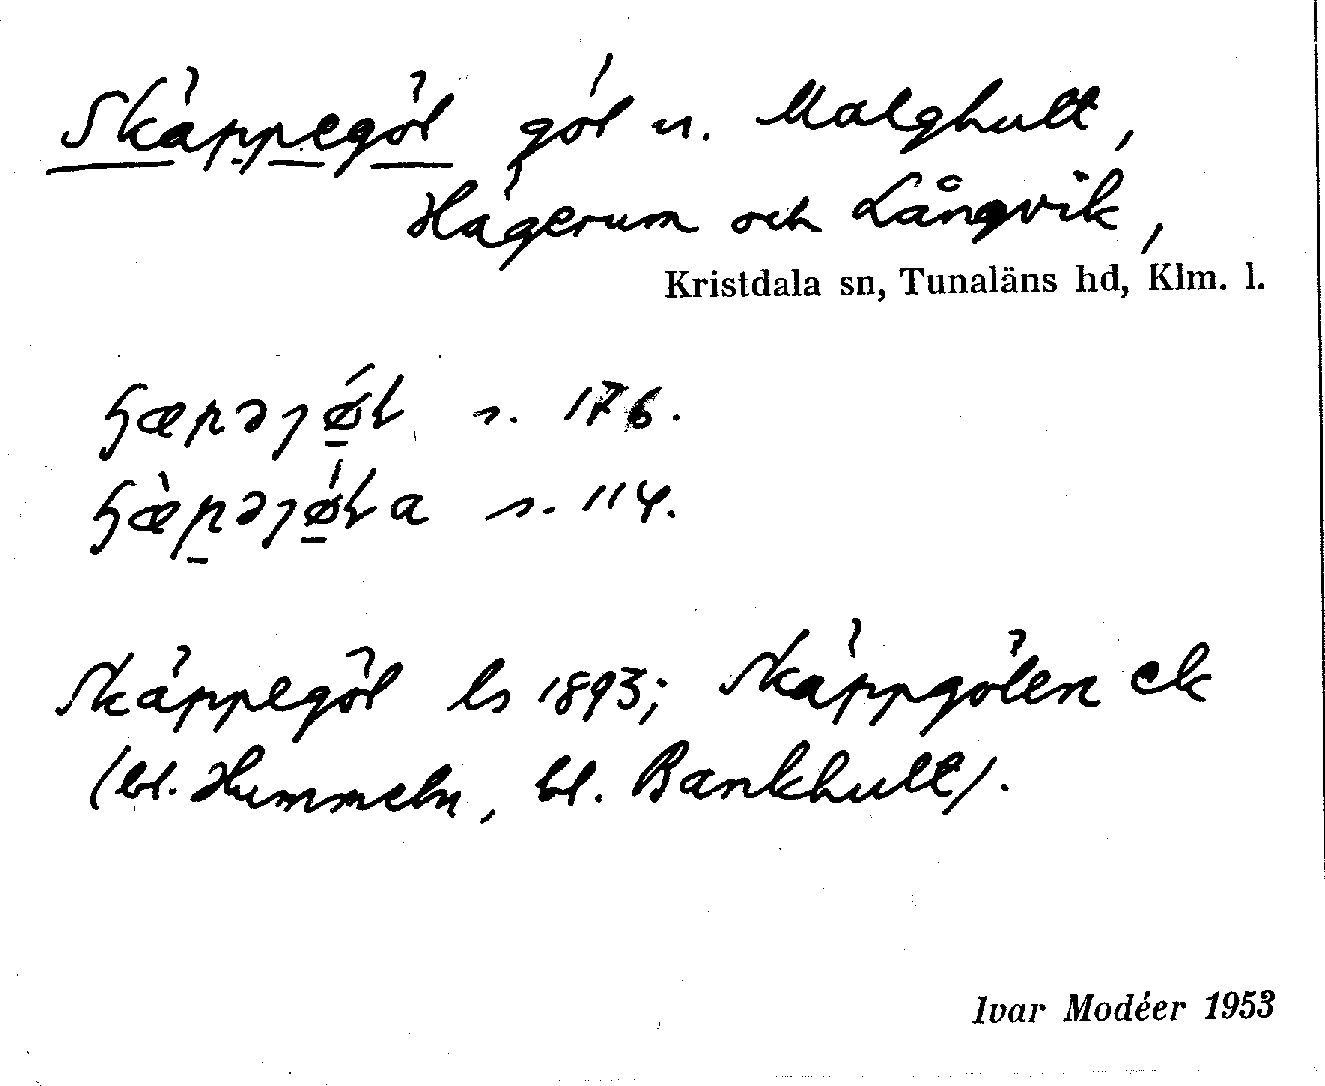 Skäppegöl göl u. Malghult,
Hägerum och Långvik,
Kristdala sn, Tunaläns hd, Klm. l.
ɧæpəjø̲l s. 176.
ɧæ̀p̲əjǿ̲la s. 114.
Skäppegöl ls 1893; Skäppgölen ek
(bl. Hummeln, bl. Bankhult).
Ivar Modéer 1953